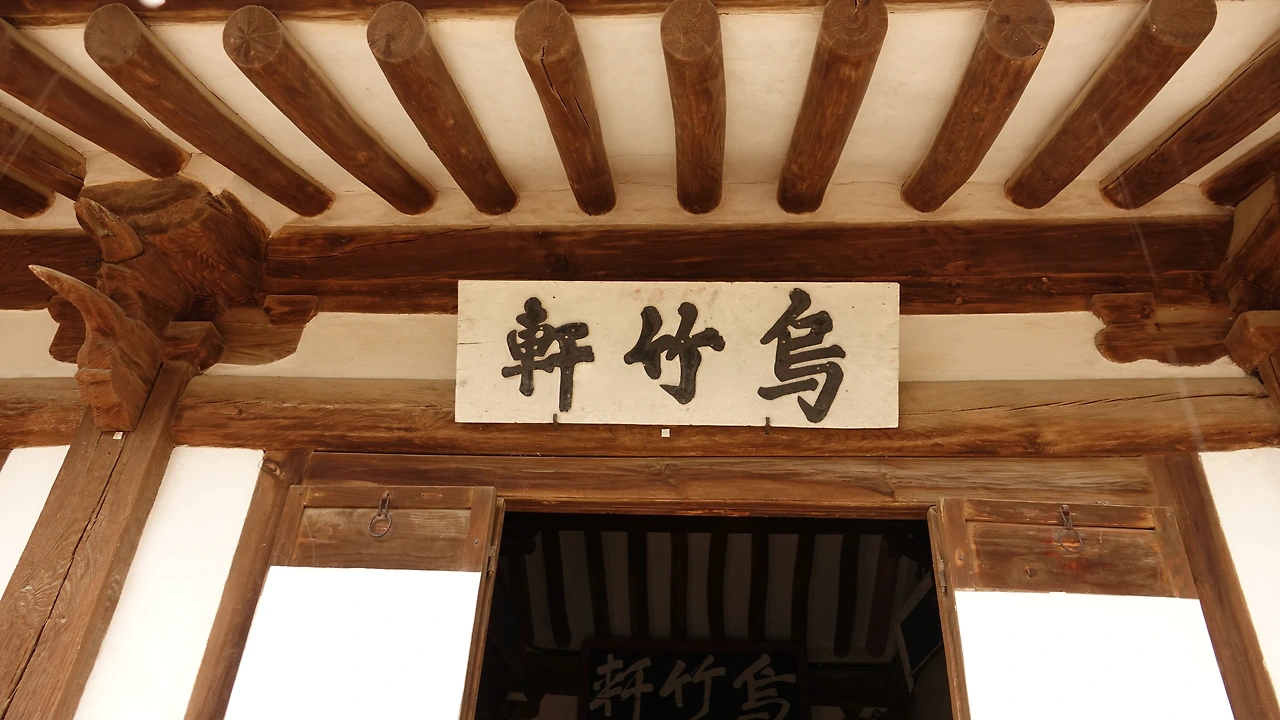 烏竹軒
烏竹軒